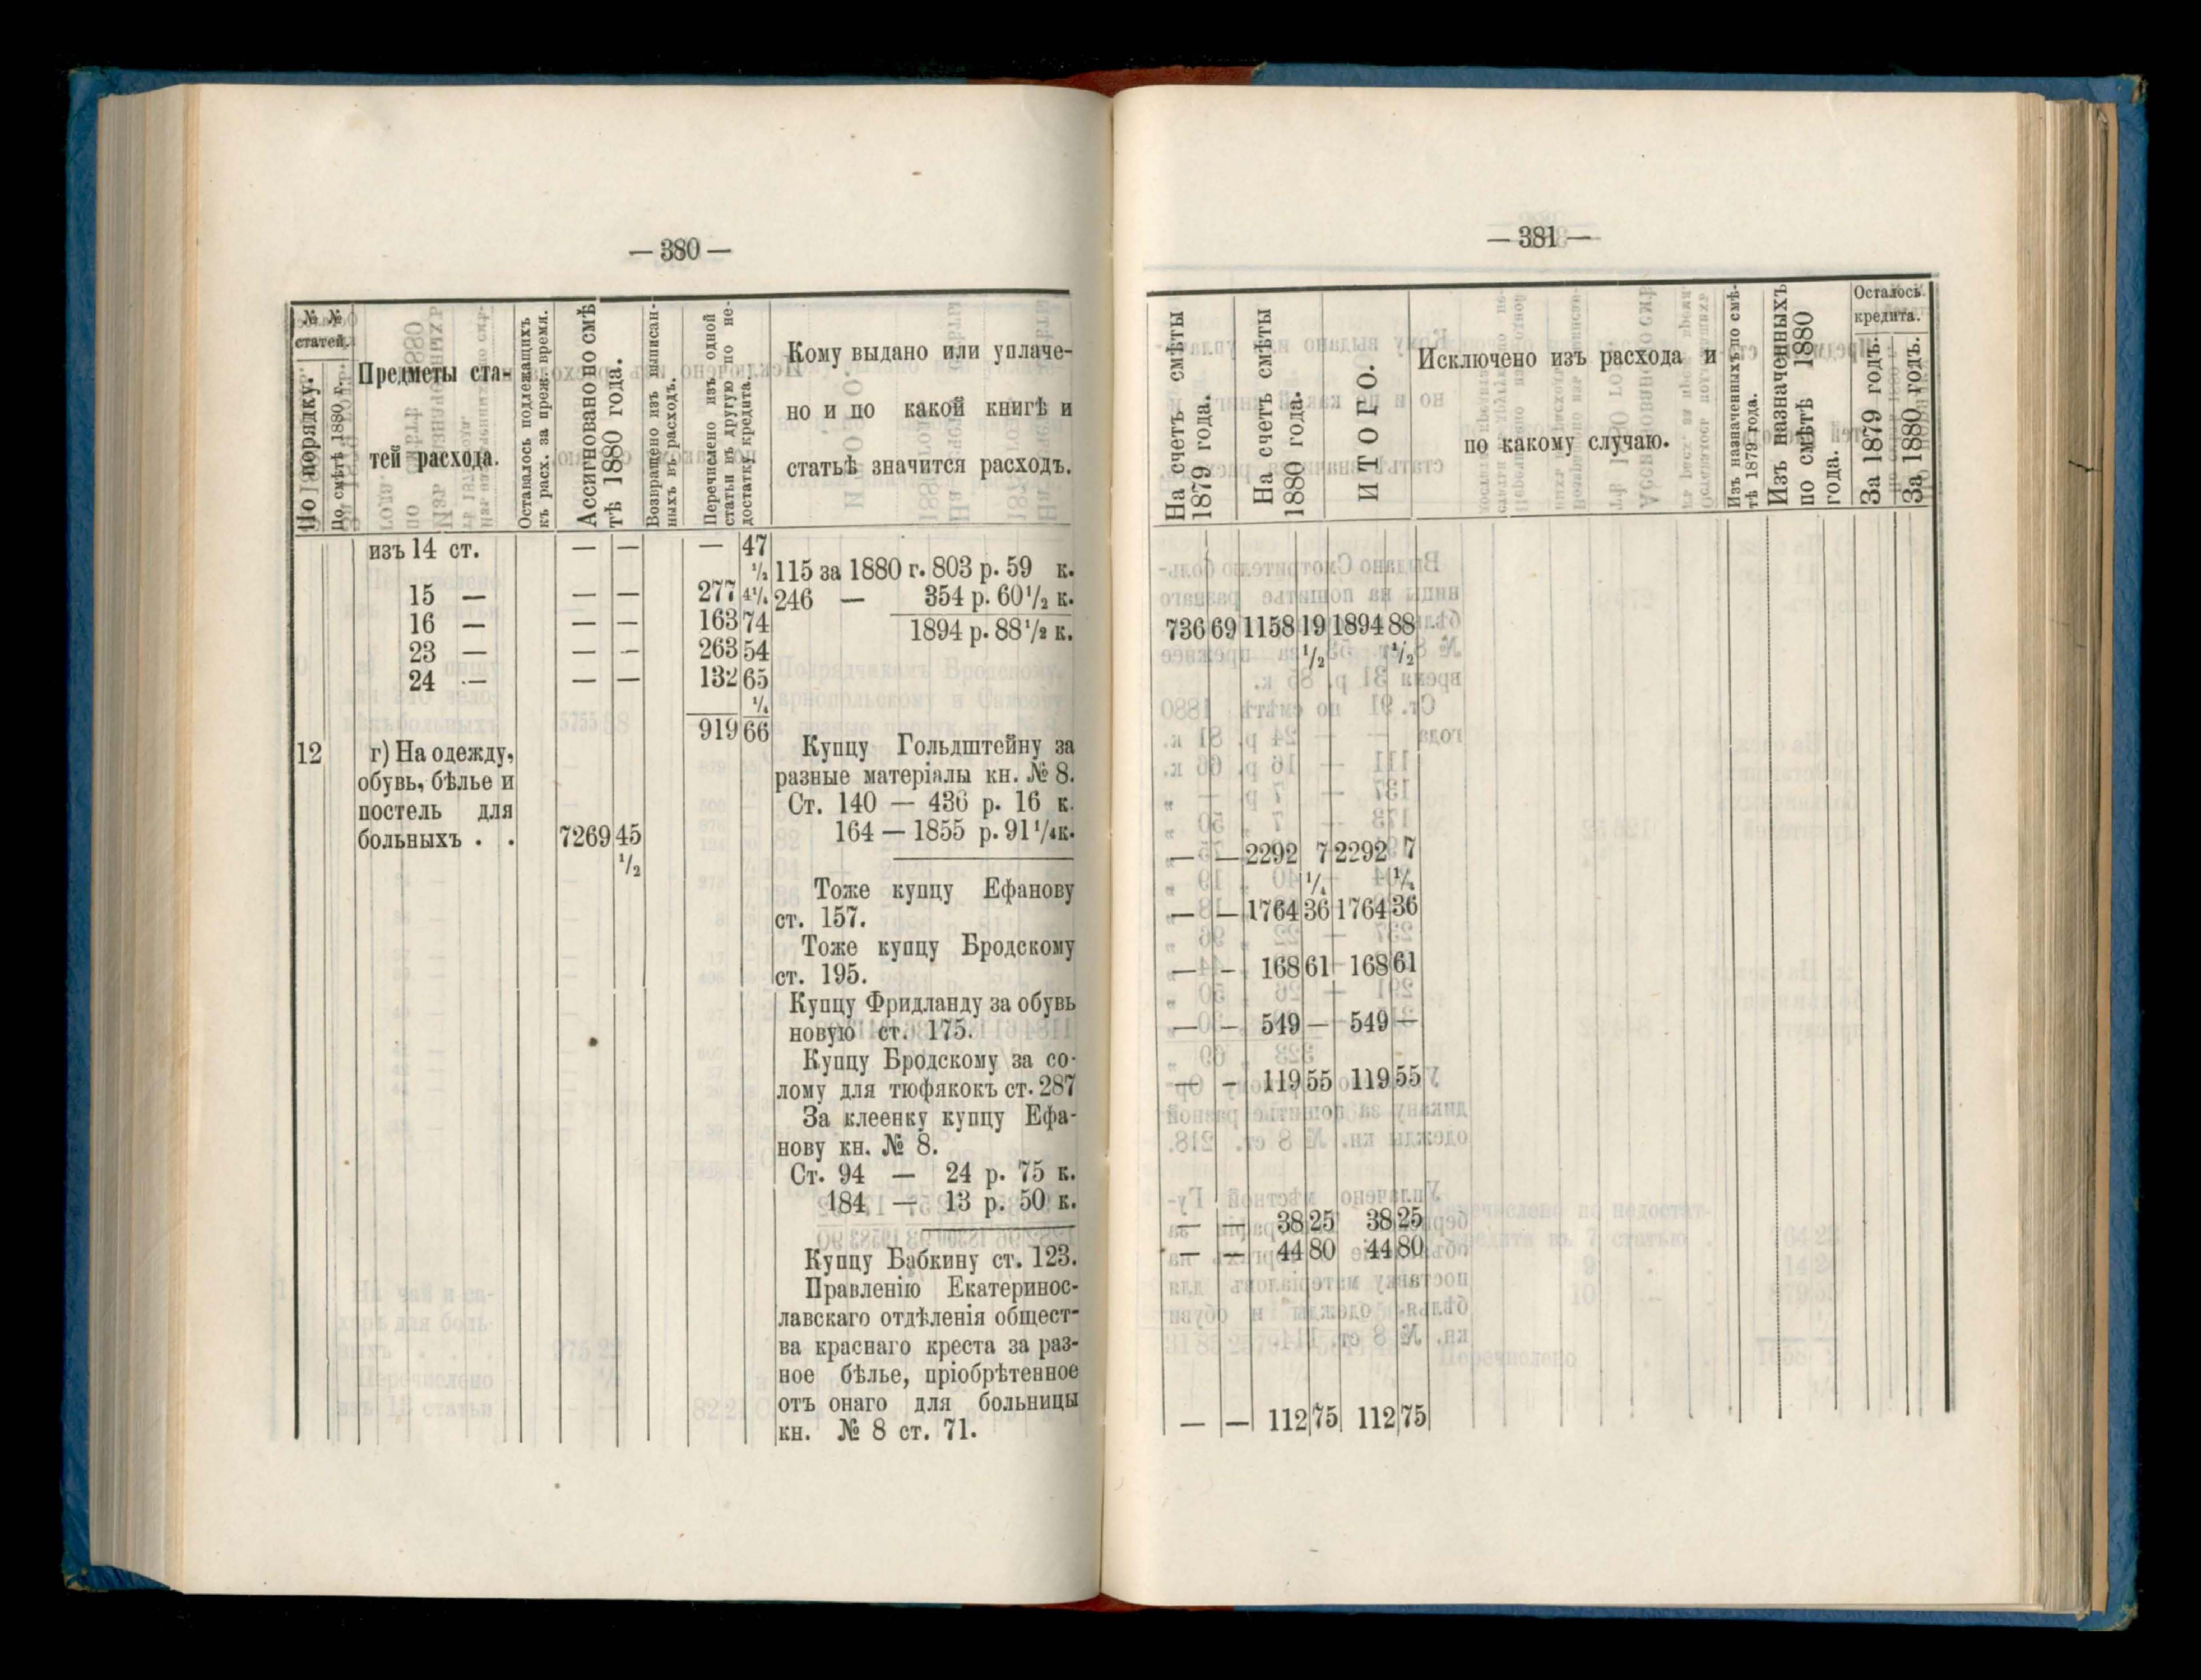 — 380 —
№ №
статей.
По порядку.
По смѣтѣ 1880 г.
Предметы ста-
тей расхода.
Оставалось подлежащихъ
къ расх. за преж. время.
Ассигновано по смѣ
тѣ 1880 года.
Возвращено изъ выписан-
ныхъ въ расходъ.
Перечислено изъ одной
статьи въ другую по не-
достатку кредита.
Кому выдано или уплаче-
но и по какой книгѣ и
статьѣ значится расходъ.
изъ 14 ст. — — — 47
½ 115 за 1880 г. 803 р. 59 к.
15 — — — 277 4¼ 246 — 354 р. 60½ к.
16 — — — 163 74
1894 р. 88½ к.
23 — — — 263 54
24 — — — 132 65
¼
919 66
12 г) На одежду,
обувь, бѣлье и
постель для
больныхъ . . 7269 45
½
Купцу Гольдштейну за
разные матеріалы кн. № 8.
Ст. 140 — 436 р. 16 к.
164 — 1855 р. 91¼ к.
Тоже купцу Ефанову
ст. 157.
Тоже купцу Бродскому
ст. 195.
Купцу Фридланду за обувь
новую ст. 175.
Купцу Бродскому за со-
лому для тюфякокъ ст. 287
За клеенку купцу Ефа-
нову кн. № 8.
Ст. 94 — 24 р. 75 к.
184 — 13 р. 50 к.
Купцу Бабкину ст. 123.
Правленію Екатеринос-
лавскаго отдѣленія общест-
ва краснаго креста за раз-
ное бѣлье, пріобрѣтенное
отъ онаго для больницы
кн. № 8 ст. 71.
— 381 —
На счетъ смѣты
1879 года.
На счетъ смѣты
1880 года.
ИТОГО.
Исключено изъ расхода и
по какому случаю.
Изъ назначенныхъ по смѣ-
тѣ 1879 года.
Изъ назначенныхъ
по смѣтѣ 1880
года.
Осталось
кредита.
За 1879 годъ.
За 1880 годъ.
736 69 1158 19 1894 88
½ ½
— — 2292 7 2292 7
¼ ¼
— — 1764 36 1764 36
— — 168 61 168 61
— — 549 — 549 —
— — 119 55 119 55
— — 38 25 38 25
— — 44 80 44 80
— — 112 75 112 75